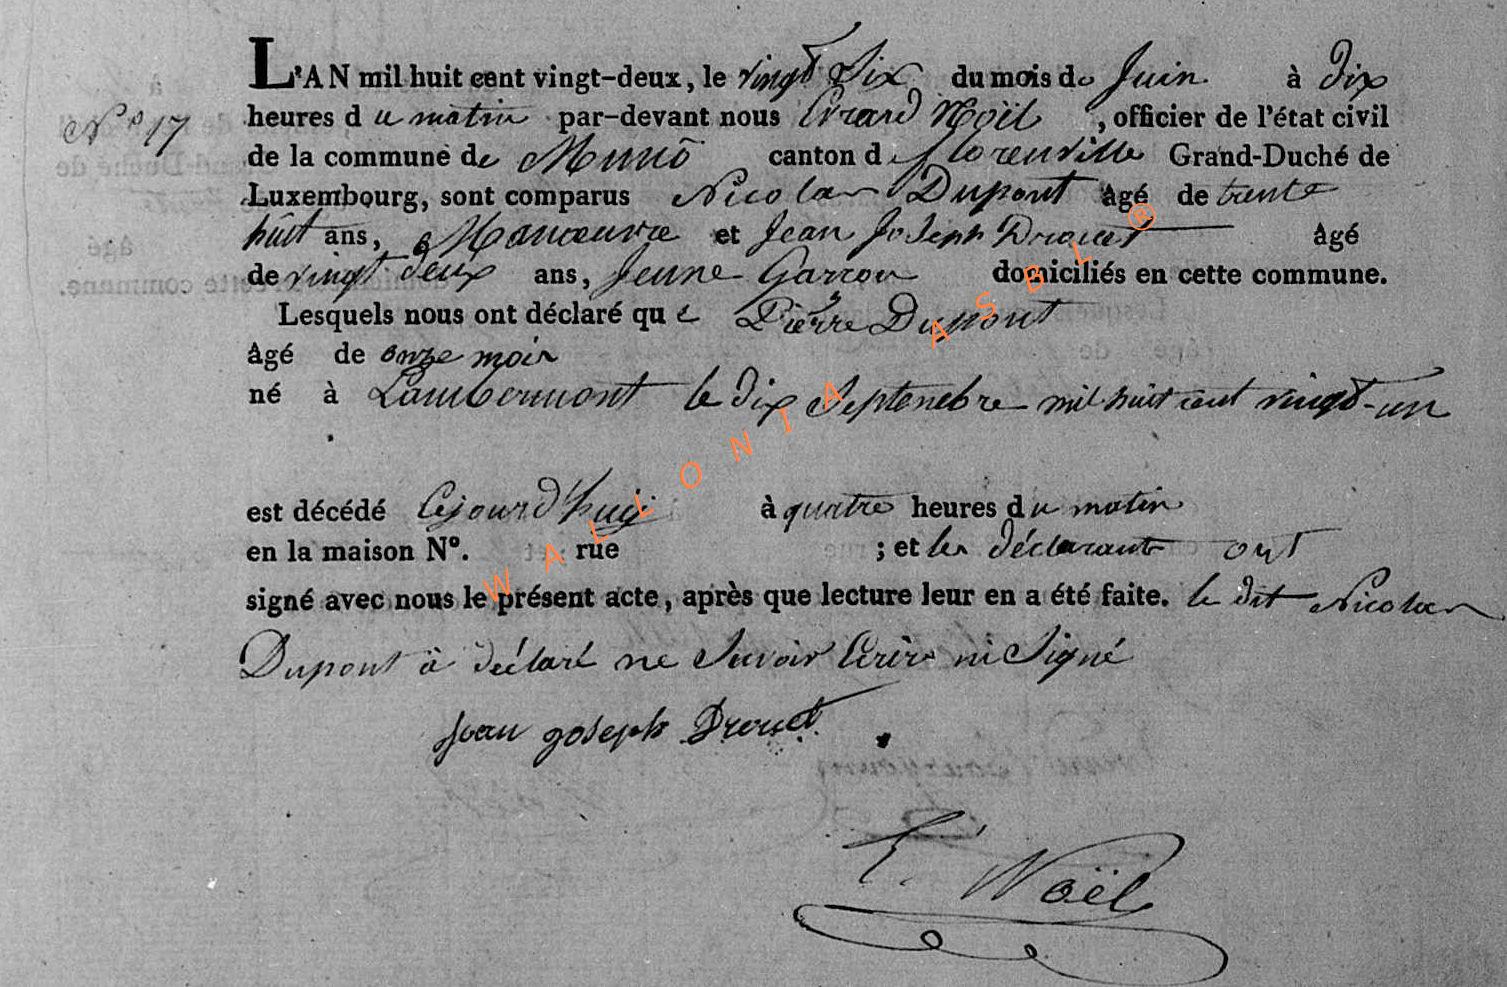 L'AN mil huit cent vingt-deux, le vingt Six du mois de Juin à dix
N° 17
heures du matin par-devant nous Evrard Noël, officier de l'état civil
de la commune de Muno canton de florenville Grand-Duché de
Luxembourg, sont comparus Nicolas Dupont âgé de trente
huit ans, Manoeuvre et Jean Joseph Drouet âgé
de vingt deux ans, Jeune Garçon domiciliés en cette commune.
Lesquels nous ont déclaré que Pierre Dupont
âgé de onze mois
né à Lambermont le dix Septenebre mil huit cent vingt-un
est décédé Cejourd'huy à quatre heures du matin
en la maison N°. rue ; et les déclarants ont
signé avec nous le présent acte, après que lecture leur en a été faite. le dit Nicolas
Dupont à déclaré ne Savoir Ecrire ni Signé
Jean Joseph Drouet
E. Noël
WALLONIA ASBL ®